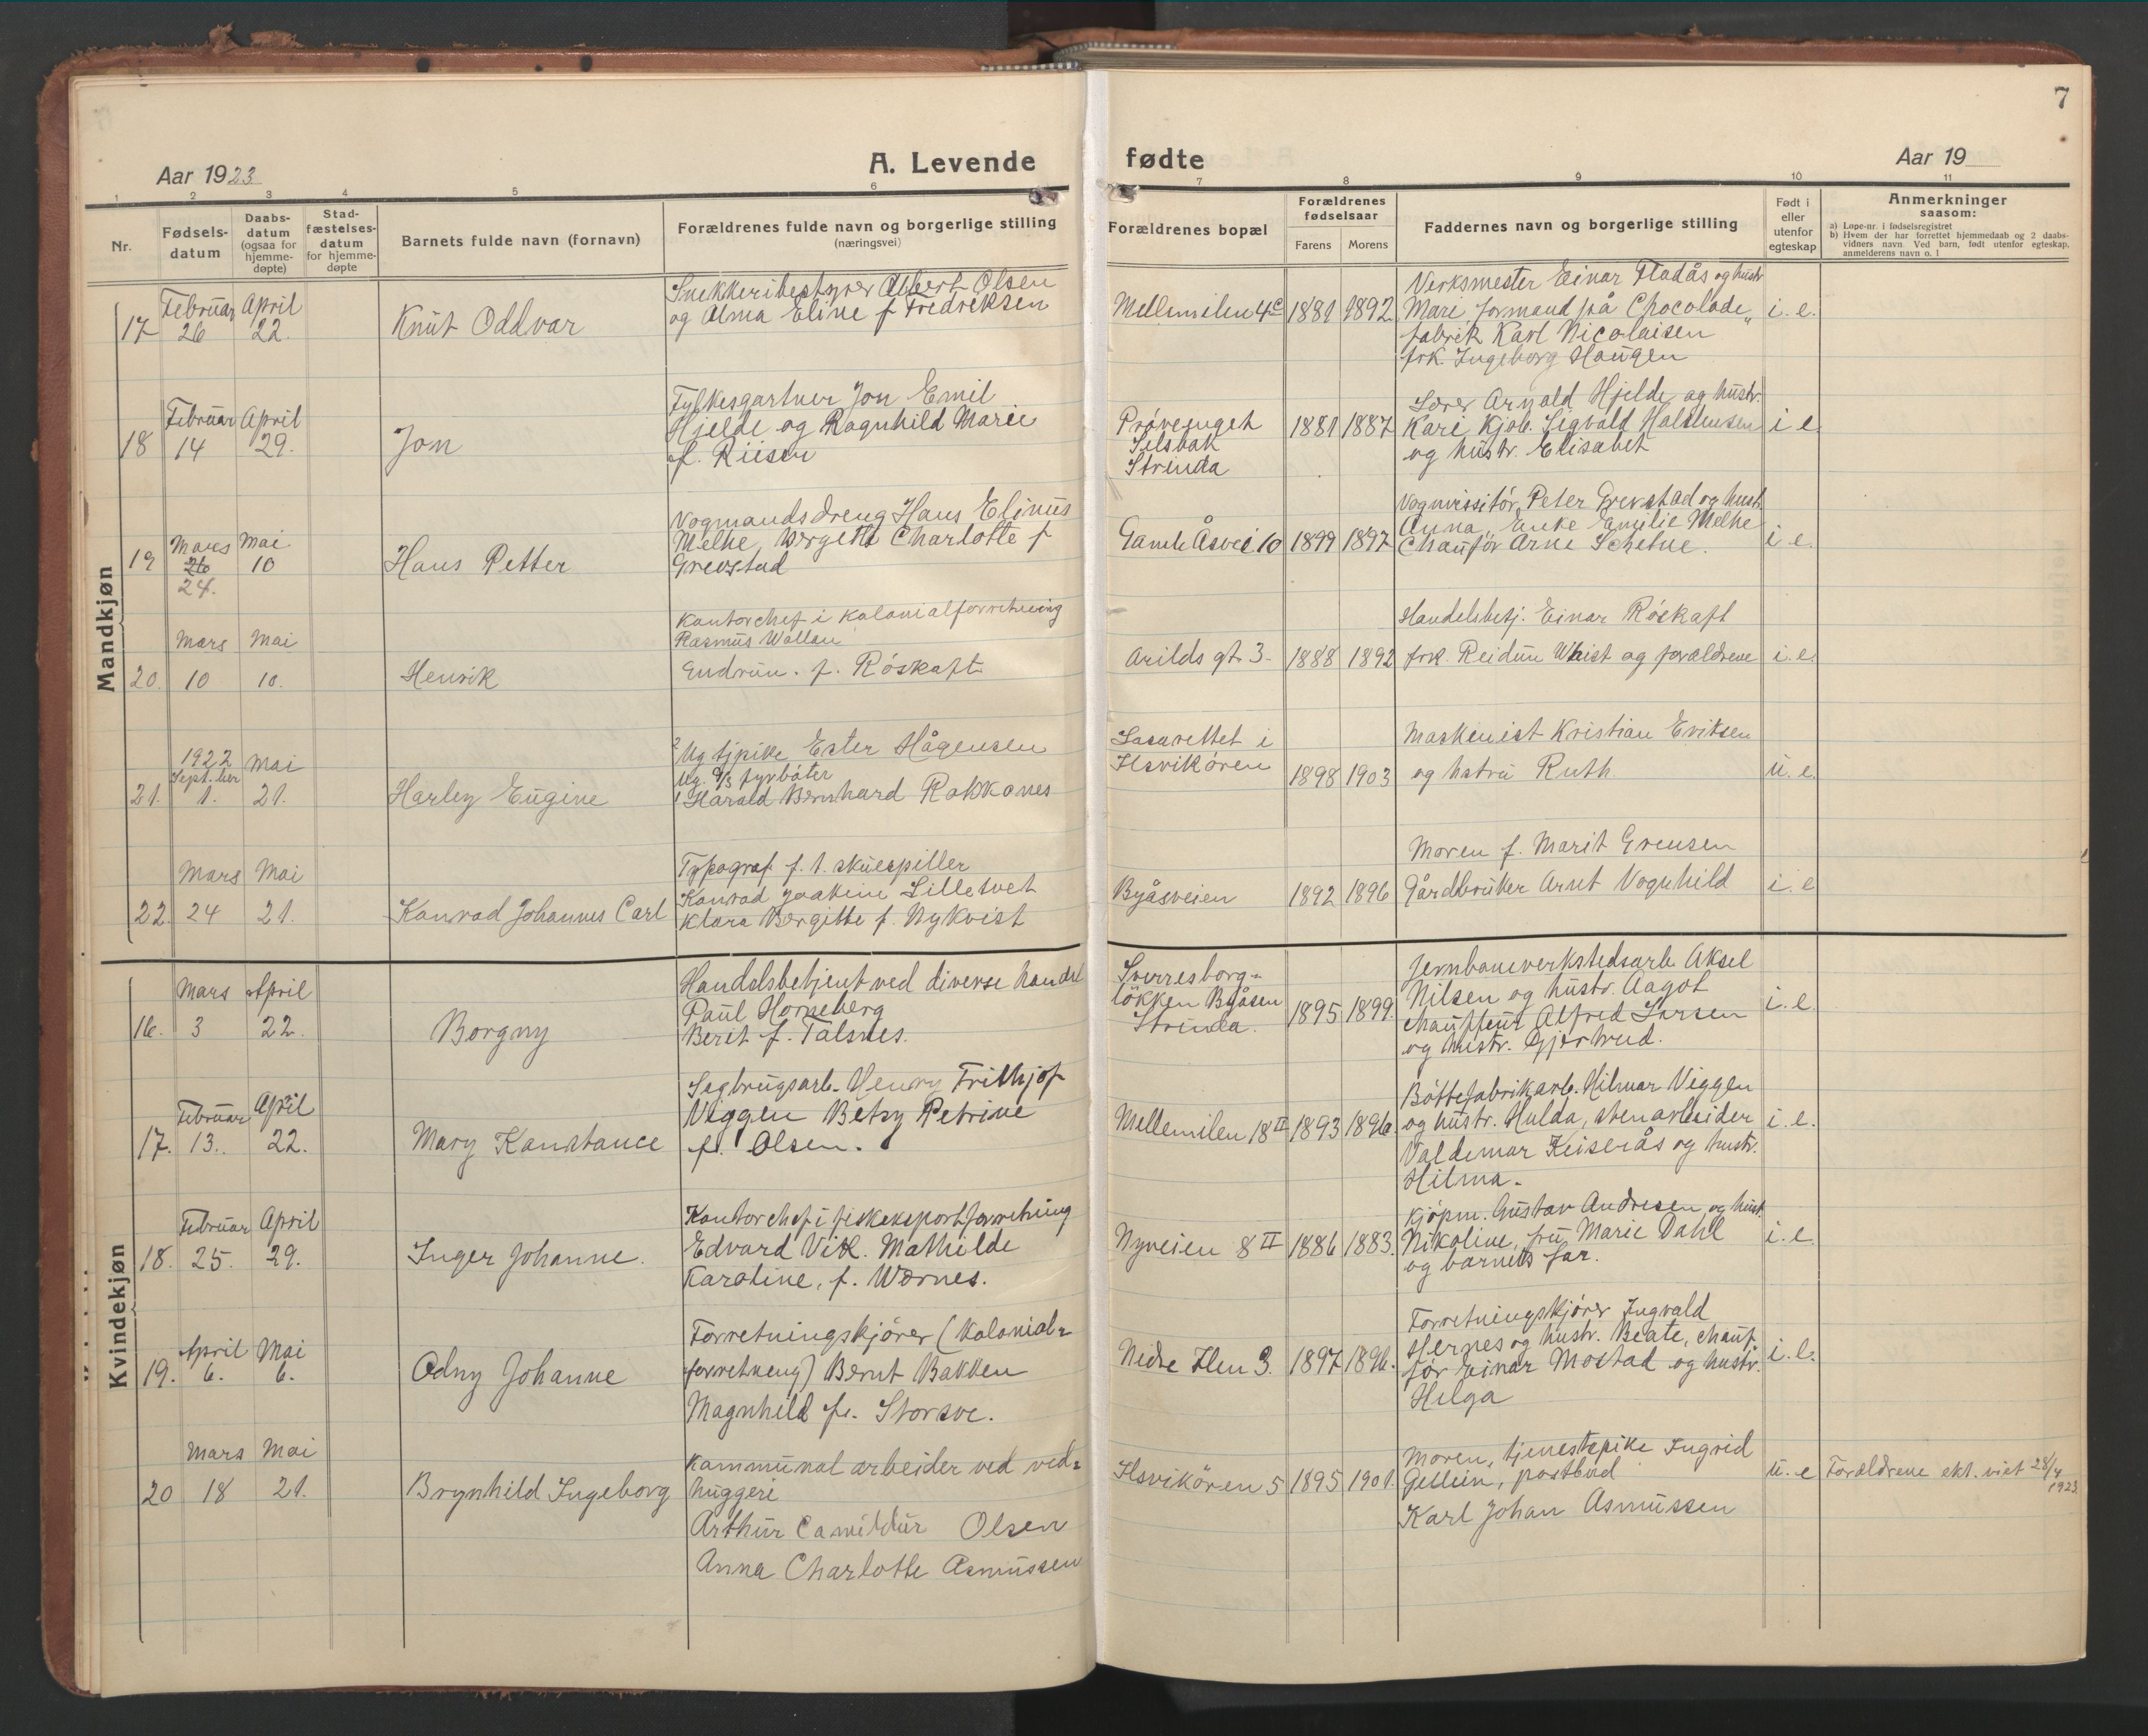 7
Aar 1923
A. Levende
fødte
Aar 19
1 2 3 4 5 6 7 8 9 10 11
Nr.
Fødsels-
datum
Daabs-
datum
(ogsaa for
hjemme-
døpte)
Stad-
fæstelses-
datum
for hjemme-
døpte
Barnets fulde navn (fornavn)
Forældrenes fulde navn og borgerlige stilling
(næringsvei)
Forældrenes bopæl
Forældrenes
fødselsaar
Farens
Morens
Faddernes navn og borgerlige stilling
Født i
eller
utenfor
egteskap
Anmerkninger
saasom:
a) Løpe-nr. i fødselsregistret
b) Hvem der har forrettet hjemmedaab og 2 daabs-
vidners navn. Ved barn, født utenfor egteskap,
anmelderens navn o. l
Mandkjøn
17
Februar
26
April
22.
Knut Oddvar
Snekkeribestyrer Albert Olsen
og Alma Eline f Fredriksen
Mellemilen 4c
1881
1892.
Verksmester Einar Fladås og hustr
Mari, formand på Chocolade„
fabrik Karl Nicolaisen
frk. Ingeborg Haugen
i. e.
18
Februar
14
April
29.
Jon
Fylkesgartner Jon Emil
Hjelde og Ragnhild Marie
f. Riiser
Prøvenget
Selsbak
Strinda
1881
1887
Lærer Arnold Hjelde og hustr.
Kari Kjøb. Sigvald Halseusen
og hustr. Elisabet
i e
19
Mars
26
24.
Mai
10
Hans Petter
Vogmandsdreng Hans Elinus
Melhe, Bergitte Charlotte f
Grevstad
Gamle Åsvei 10
1899
1897
Vognvissitør Peter Grevstad og hust.
Anna, Enke Emilie Melhe
Chauför Arne Schetne.
i e.
20.
Mars
10
Mai
10.
Henrik
Kontorchef i kolonialforretning
Rasmus Wollan
Gudrun. f. Röskaft
Arilds gt. 3.
1888
1892
Handelsbetj. Einar Röskaft
frk. Reidun Waist og forældrene
i. e.
21.
1922
Sept.ber
1.
Mai
21.
Harley Eugine
2 Ug tjpike Ester Hågensen
Ug. D/S fyrbøter
1 Harald Bernhard Rokkones
Lasarettet i
Ilsvikören
1898
1903
Maskenist Kristian Eriksen
og hstru Ruth.
u. e.
22.
Mars
24
Mai
21.
Konrad Johannes Carl
Typograf f. t. skuespiller
Konrad Joakim Lillesvet
Klara Bergitte f. Nykvist
Byåsveien
1892
1896
Moren f. Marit Evensen
Gårdbruker Arnt Vognhild
i. e
Kvindekjøn
16.
Mars
3
April
22.
Borgny
Handelsbetjent ved diverse handel
Paul Horneberg
Berit f. Talsnes.
Sverresborg-
løkken Byåsen
Strinda.
1895
1899.
Jernbaneverkstedsarb. Aksel
Nilsen og hustr. Aagot
chaufføur Alfred Larsen
og hustr. Gjertrud.
i. e.
17.
Februar
13.
April
22.
Mary Konstance
Sagbrugsarb. Henry Frithjof
Viggen Betsy Petrine
f. Olsen.
Mellemilen 18 II
1893
1896.
Bøttefabrikarb. Hilmar Viggen
og hustr. Hulda, stenarbeider
Valdemar Keiserås og hustr.
Hilma.
i. e.
18.
Februar
25.
April
29.
Inger Johanne.
Kontorchef i fiskeksportforretning
Edvard Vik. Mathilde
Karoline, f. Wærnes.
Nyveien 8 II
1886
1883.
Kjöpm. Gustav Andresen og hust.
Nikoline, fru Marie Dahl
og barnets far.
i. e.
19.
April
6.
Mai
6.
Odny Johanne
Forretningskjører (Kolonial=
forretneng) Bernt Bakken
Magnhild f. Storsve.
Nedre Ilen 3.
1897
1896.
Forretningskjører Ingvald
Hernes og hustr. Beate, chauf
før Einar Mostad og hustr.
Helga
i. e.
20
Mars
18
Mai
21.
Brynhild Ingeborg
Kommunal arbeider ved ved=
huggeri
Arthur Camillus Olsen
Anna Charlotte Asmussen
Ilsvikören 5
1895
1901.
Moren, tjenestepike Ingrid
Gellein, postbud
Karl Johan Asmussen
u. e
Forældrene ekt. viet 28/4
1923.